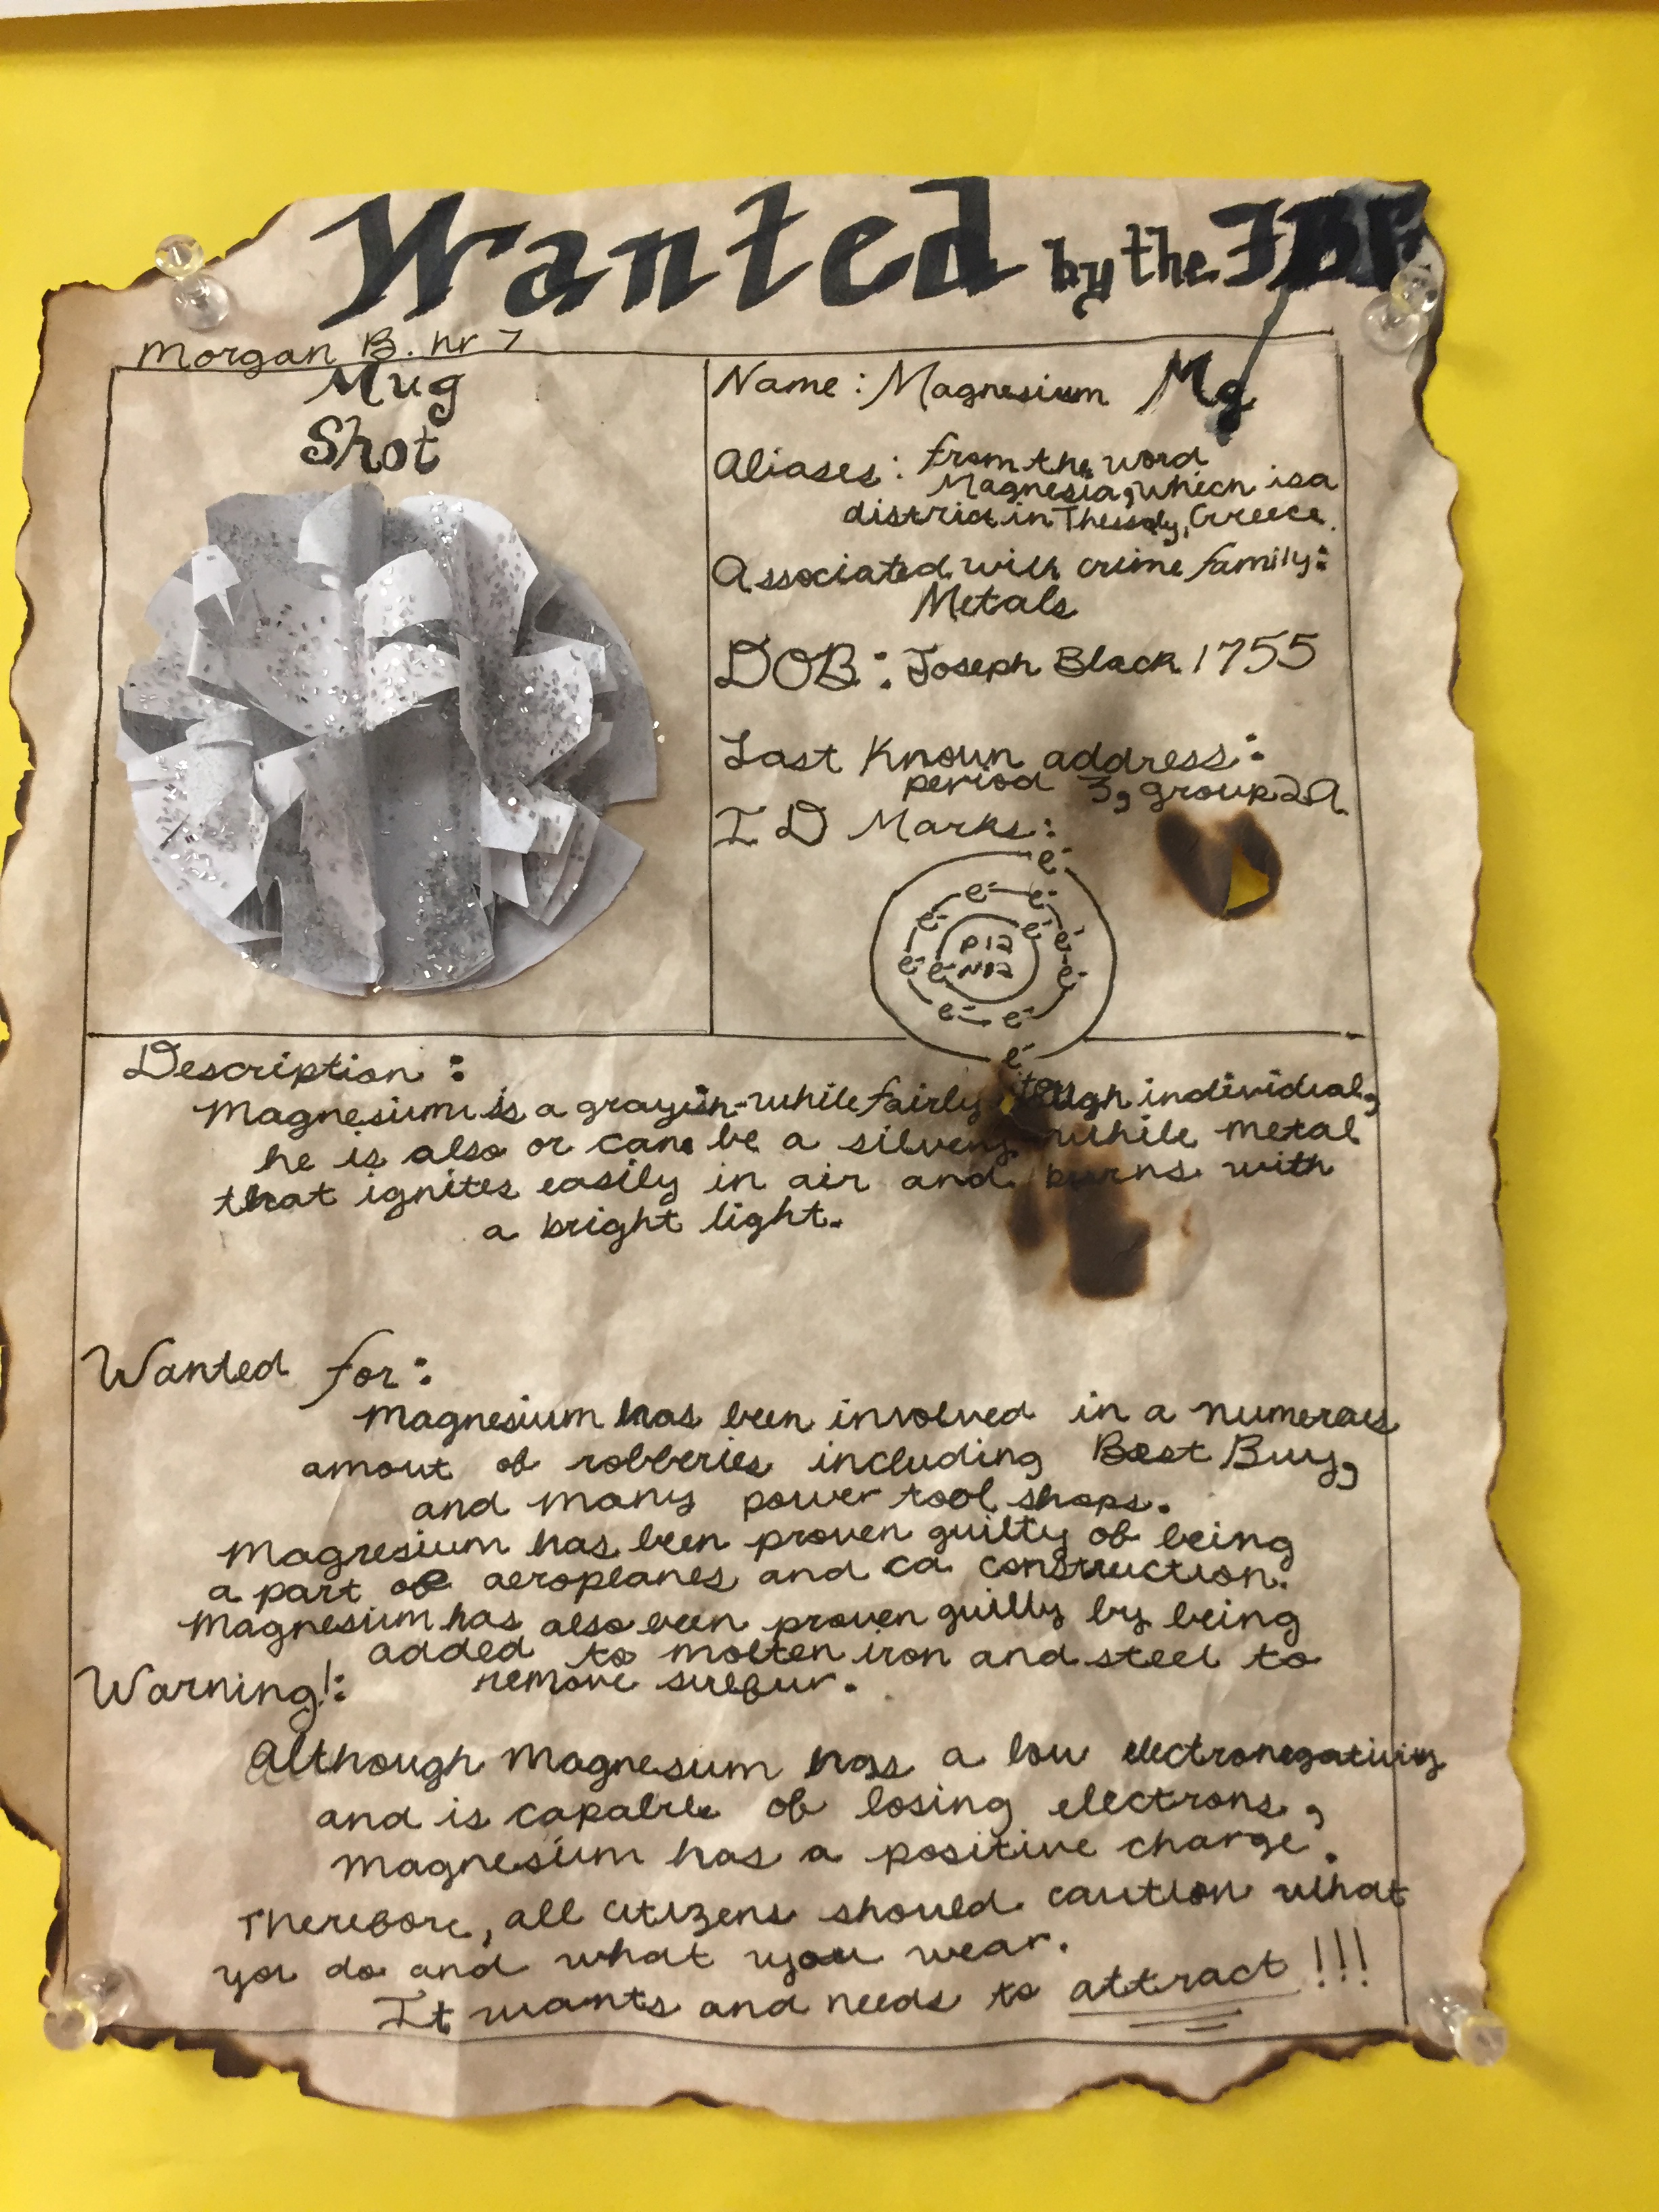 Wanted by the FBI
Morgan B. nr 7
Mug
Shot
Name: Magnesium Mg
Aliases: from the word
Magnesia, which is a
district in Thessaly, Greece.
Associated with crime family:
Metals
DOB: Joseph Black 1755
Last Known address:
period 3, group 2A
ID Marks:
e-
e- e-
e- e- e-
P12
e- e- N12 e-
e- e-
e-
Description:
Magnesium is a grayish-while fairly tough individual,
he is also or can be a silvery while metal
that ignites easily in air and burns with
a bright light.
Wanted for:
Magnesium has been involved in a numerous
amout of robberies including Best Buy,
and many power tool shops.
Magnesium has been proven guilty of being
a part of aeroplanes and ca construction.
Magnesium has also been proven guilty by being
added to molten iron and steel to
remove sulfur.
Warning!:
Although Magnesium has a low electronegativity
and is capable of losing electrons,
Magnesium has a positive charge.
Therefore, all citizens should caution what
you do and what you wear.
It wants and needs to attract!!!